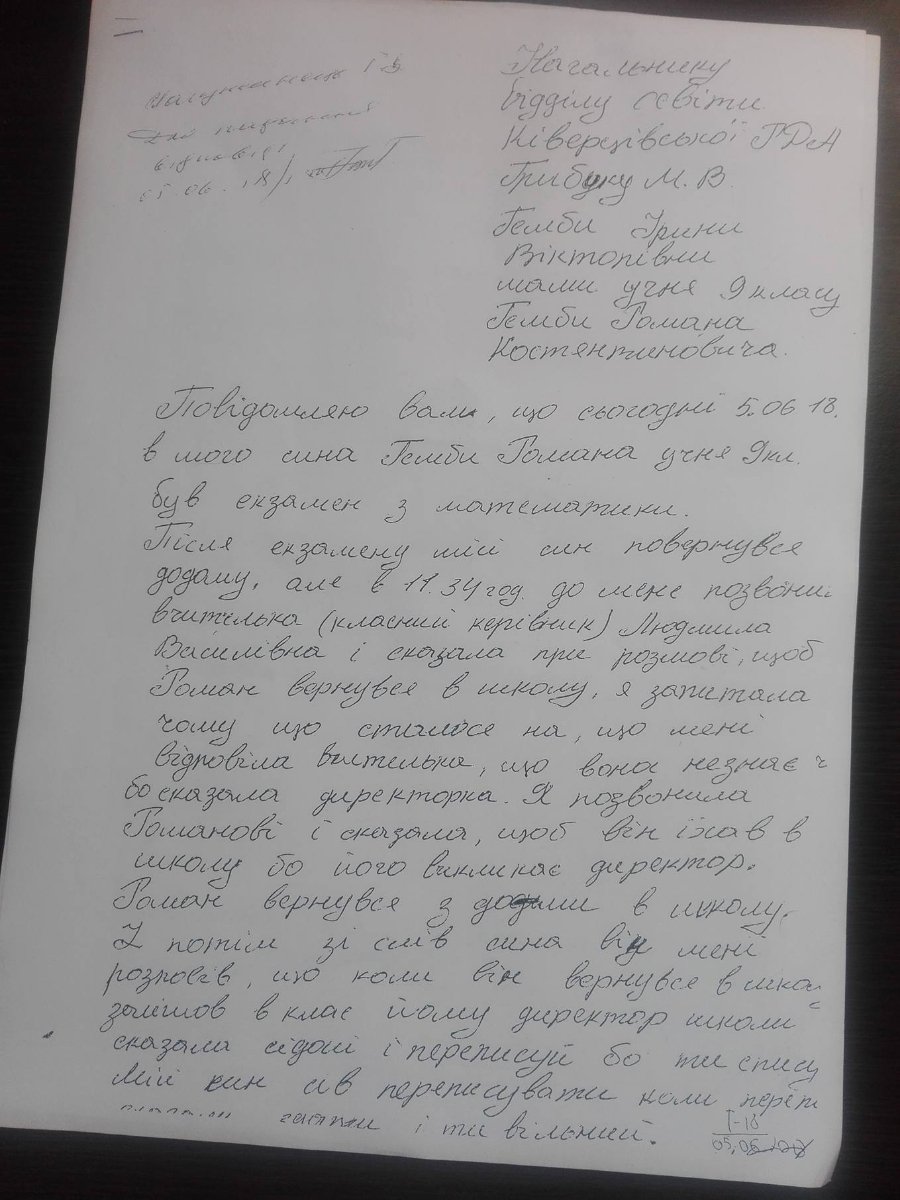 Начальнику
відділу освіти
Ківерцівської РДА
Грибуку М. В.
Гемби Ірини
Вікторівни
мами учня 9 класу
Гемби Романа
Костянтиновича.
для
відповіді
05.06.18
Повідомляю вам, що сьогодні 5.06 18.
в мого сина Гемби Романа учня 9кл.
був екзамен з математики.
Після екзамену мій син повернувся
додому, але в 11.34 год. до мене позвони
вчителька (класний керівник) Людмила
Василівна і сказала при розмові, щоб
Роман вернувся в школу, я запитала
чому що сталося на, що мені
відповіла вчителька, що вона незнає
бо сказала директорка. Я позвонила
Романові і сказала, щоб він їхав в
школу бо його викликає директор.
Роман вернувся з доми в школу.
І потім зі слів сина він мені
розповів, що коли він вернувся в шко
зайшов в клас йому директор школи
сказала сідай і переписуй бо ти спису
Мій син сів переписувати коли переп
і ти вільний.
І-18
05.06